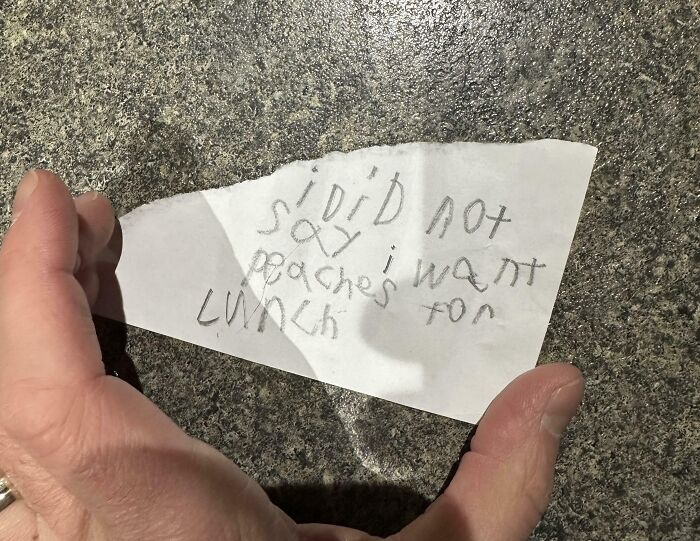 i DiD not
say i want
peaches for
LUNCh